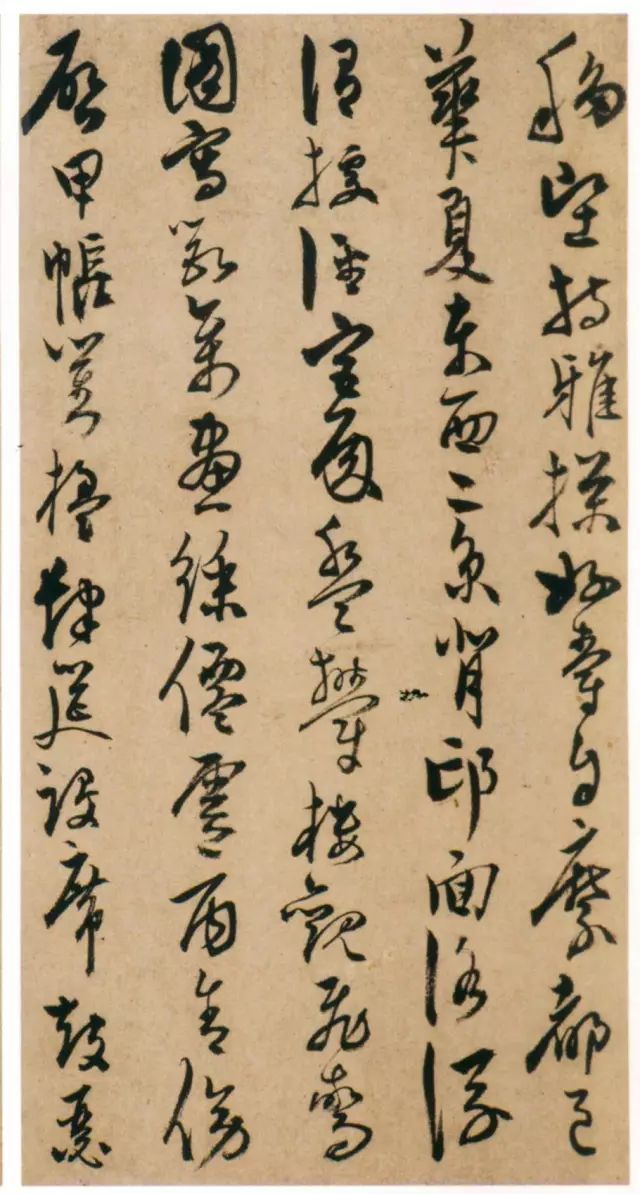 移堅持雅操好爵自縻都邑
華夏東西二京背邙面洛浮
渭據涇宮殿盤鬱樓觀飛驚
圖寫獸禽畫綵僊靈丙舍傍
啓甲帳對楹肆筵設席鼓瑟